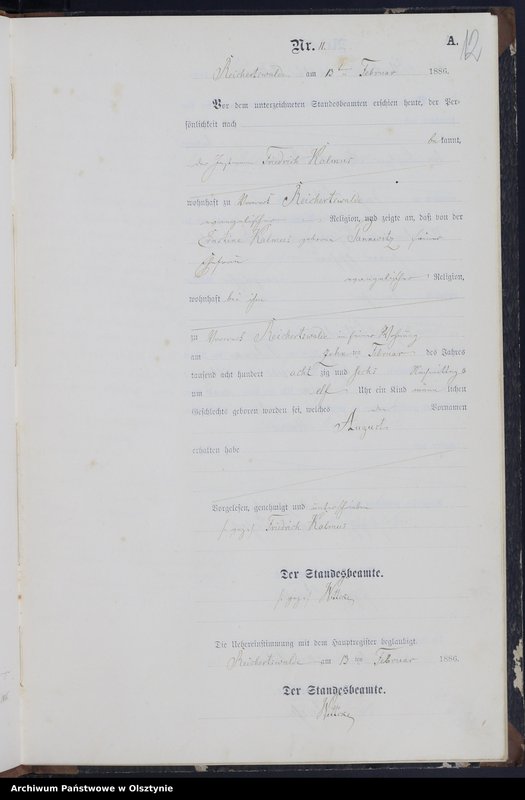 Nr. 11. A. 12
Reichertswalde am 13ten Februar 1886.
Vor dem unterzeichneten Standesbeamten erschien heute, der Per-
sönlichkeit nach
bekannt,
der Friedrich Kalmus
wohnhaft zu Vorwerk Reichertswalde
evangelischer Religion, und zeigte an, daß von der
Kalmus geborene seiner
Ehefrau
evangelischer Religion,
wohnhaft bei ihm
zu Vorwerk Reichertswalde in seiner Wohnung
am zehnten Februar des Jahres
tausend acht hundert achtzig und sechs Nachmittags
um elf Uhr ein Kind männlichen
Geschlechts geboren worden sei, welches den Vornamen
August
erhalten habe
Vorgelesen, genehmigt und unterschrieben
(gez.) Friedrich Kalmus
Der Standesbeamte.
(gez.)
Die Uebereinstimmung mit dem Hauptregister beglaubigt.
Reichertswalde am 13ten Februar 1886.
Der Standesbeamte.
Archiwum Państwowe w Olsztynie